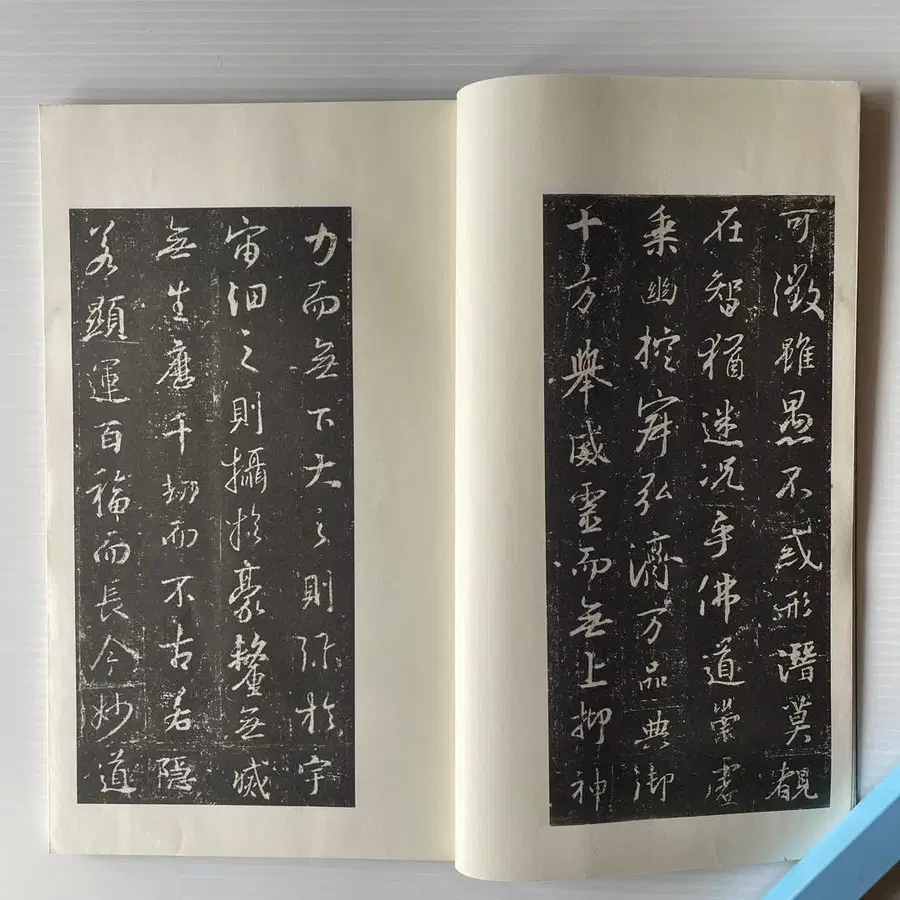 可徵雖愚不惑形潛莫覩
在智猶迷況乎佛道崇虛
乘幽控寂弘濟万品典御
十方舉威靈而無上抑神
力而無下大之則弥於宇
宙細之則攝於豪釐無滅
無生歷千劫而不古若隱
若顯運百福而長今妙道